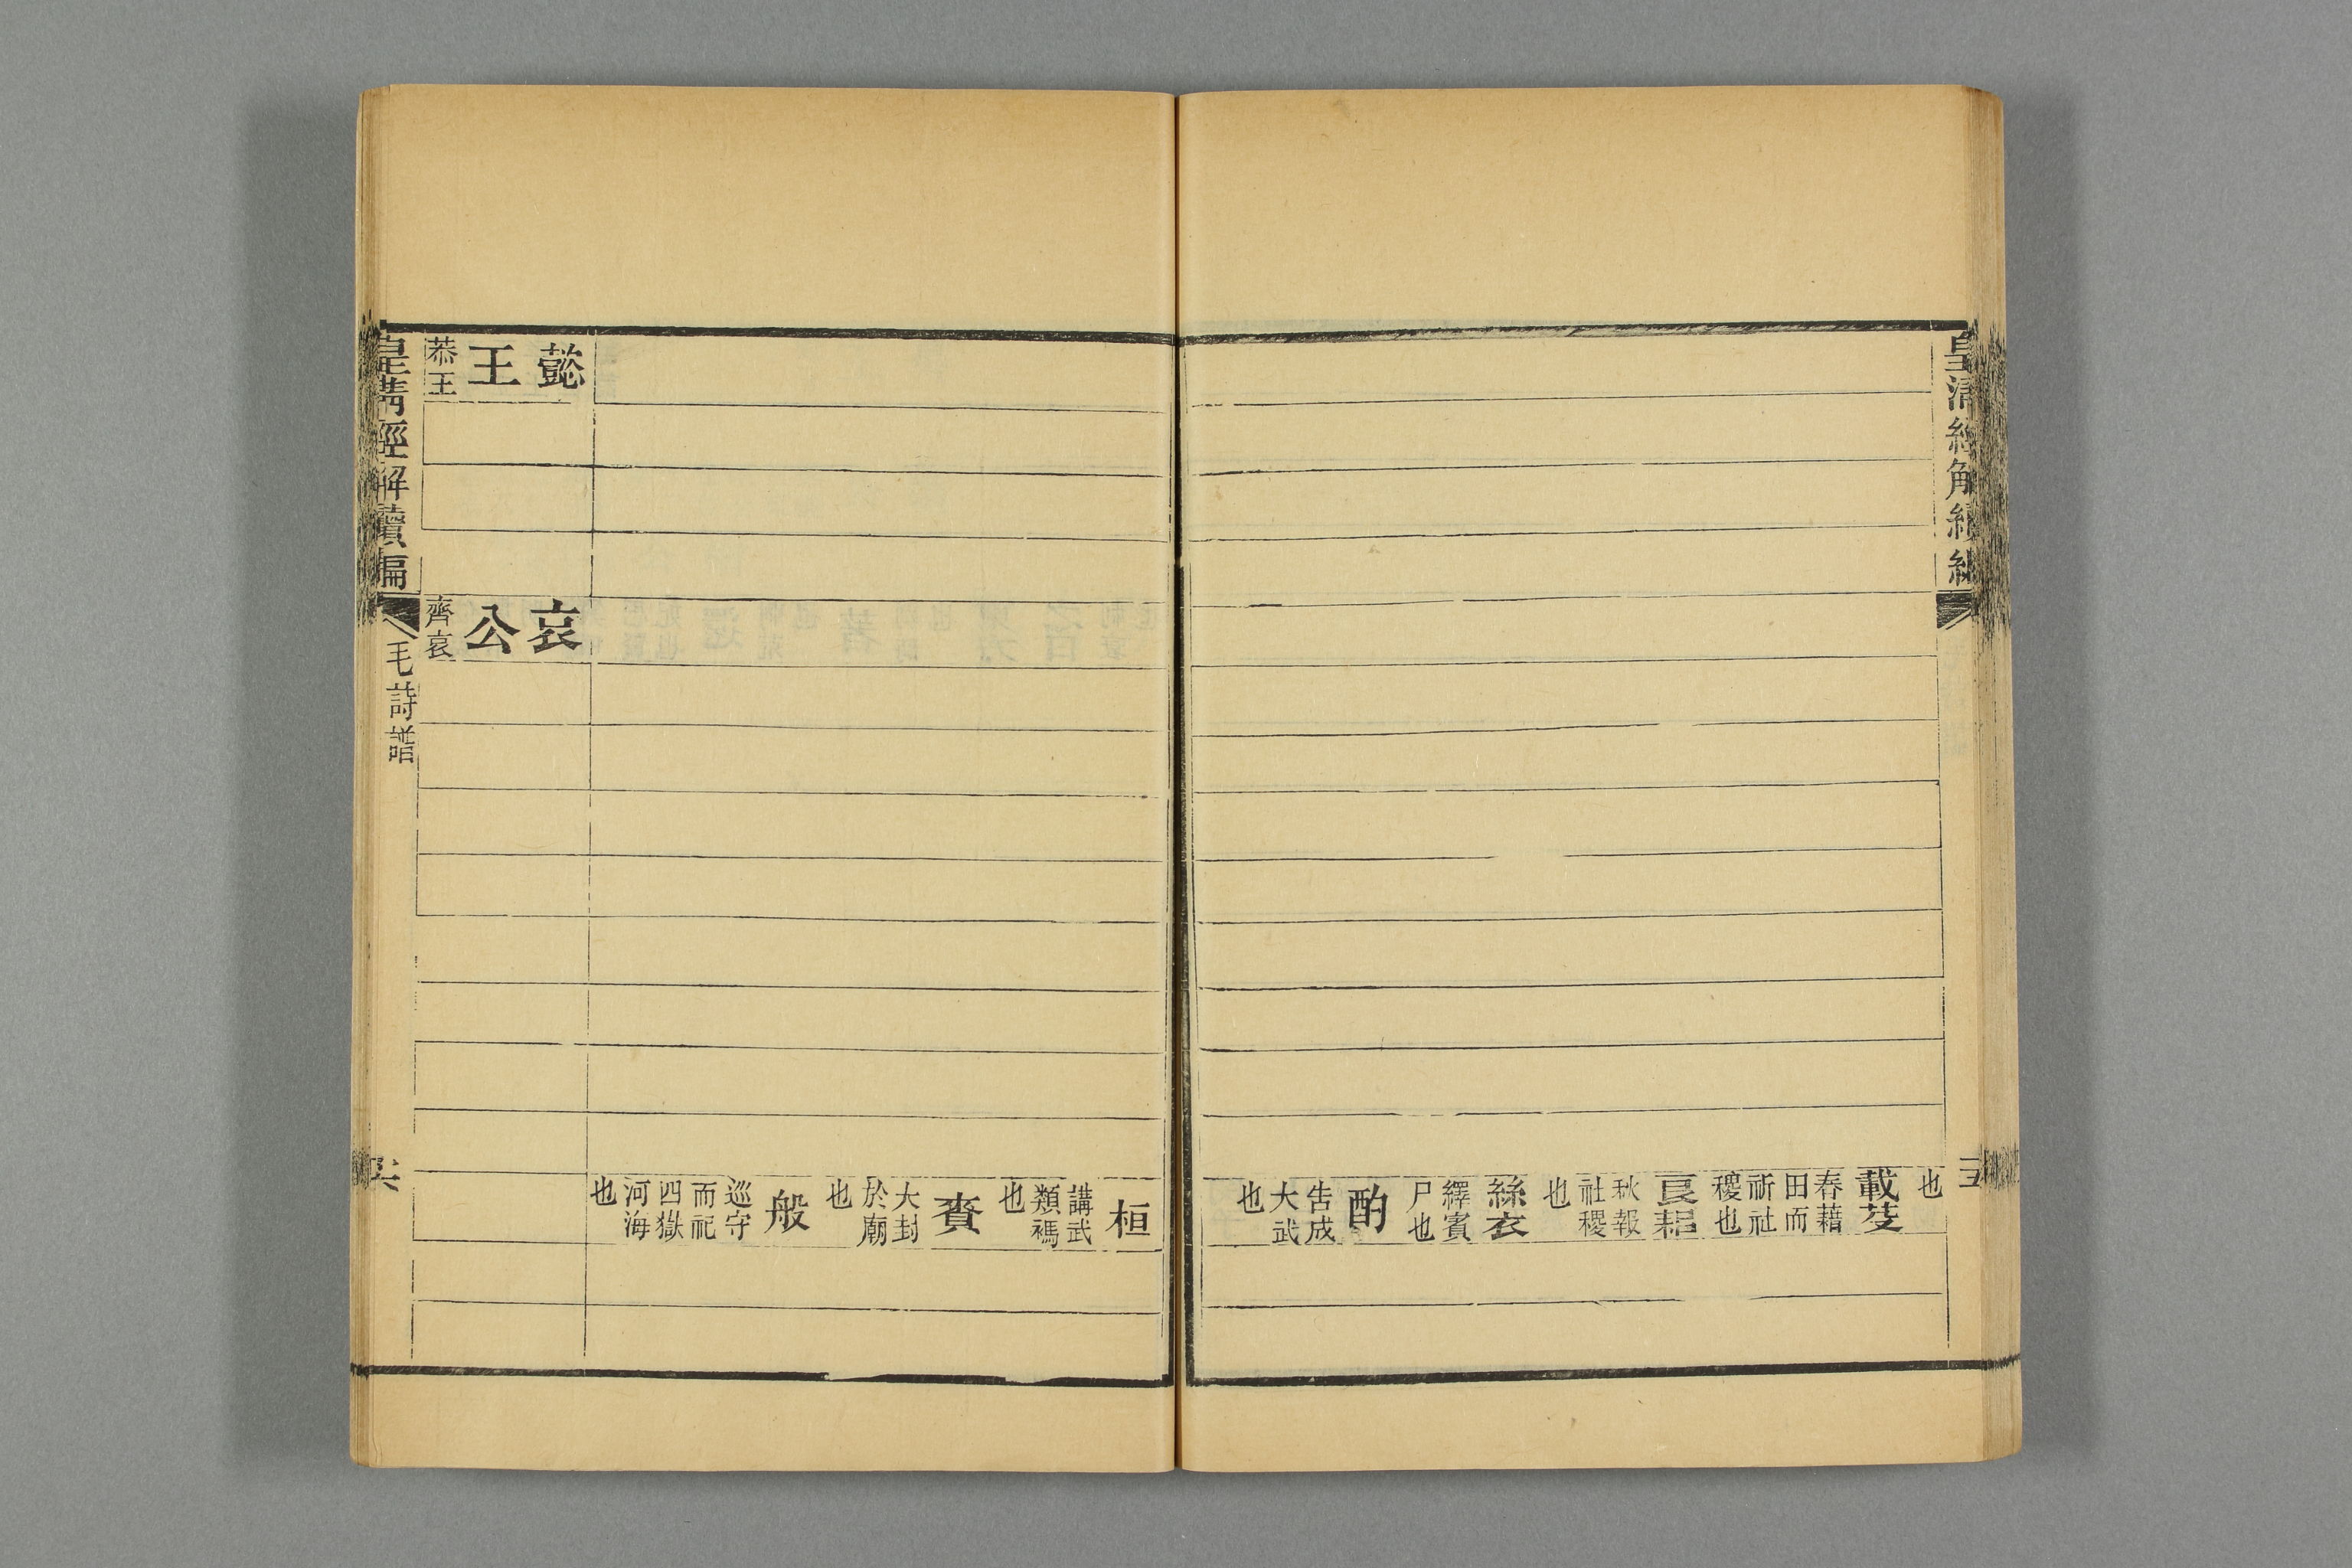 皇清經解續編
五
也
載芟
春藉
田而
祈社
稷也
良耜
秋報
社稷
也
絲衣
繹賓
尸也
酌
告成
大武
也
桓
講武
類禡
也
賚
大封
於廟
也
般
巡守
而祀
四嶽
河海
也
懿
王
恭王
哀
公
齊哀
皇清經解續編
毛詩譜
六